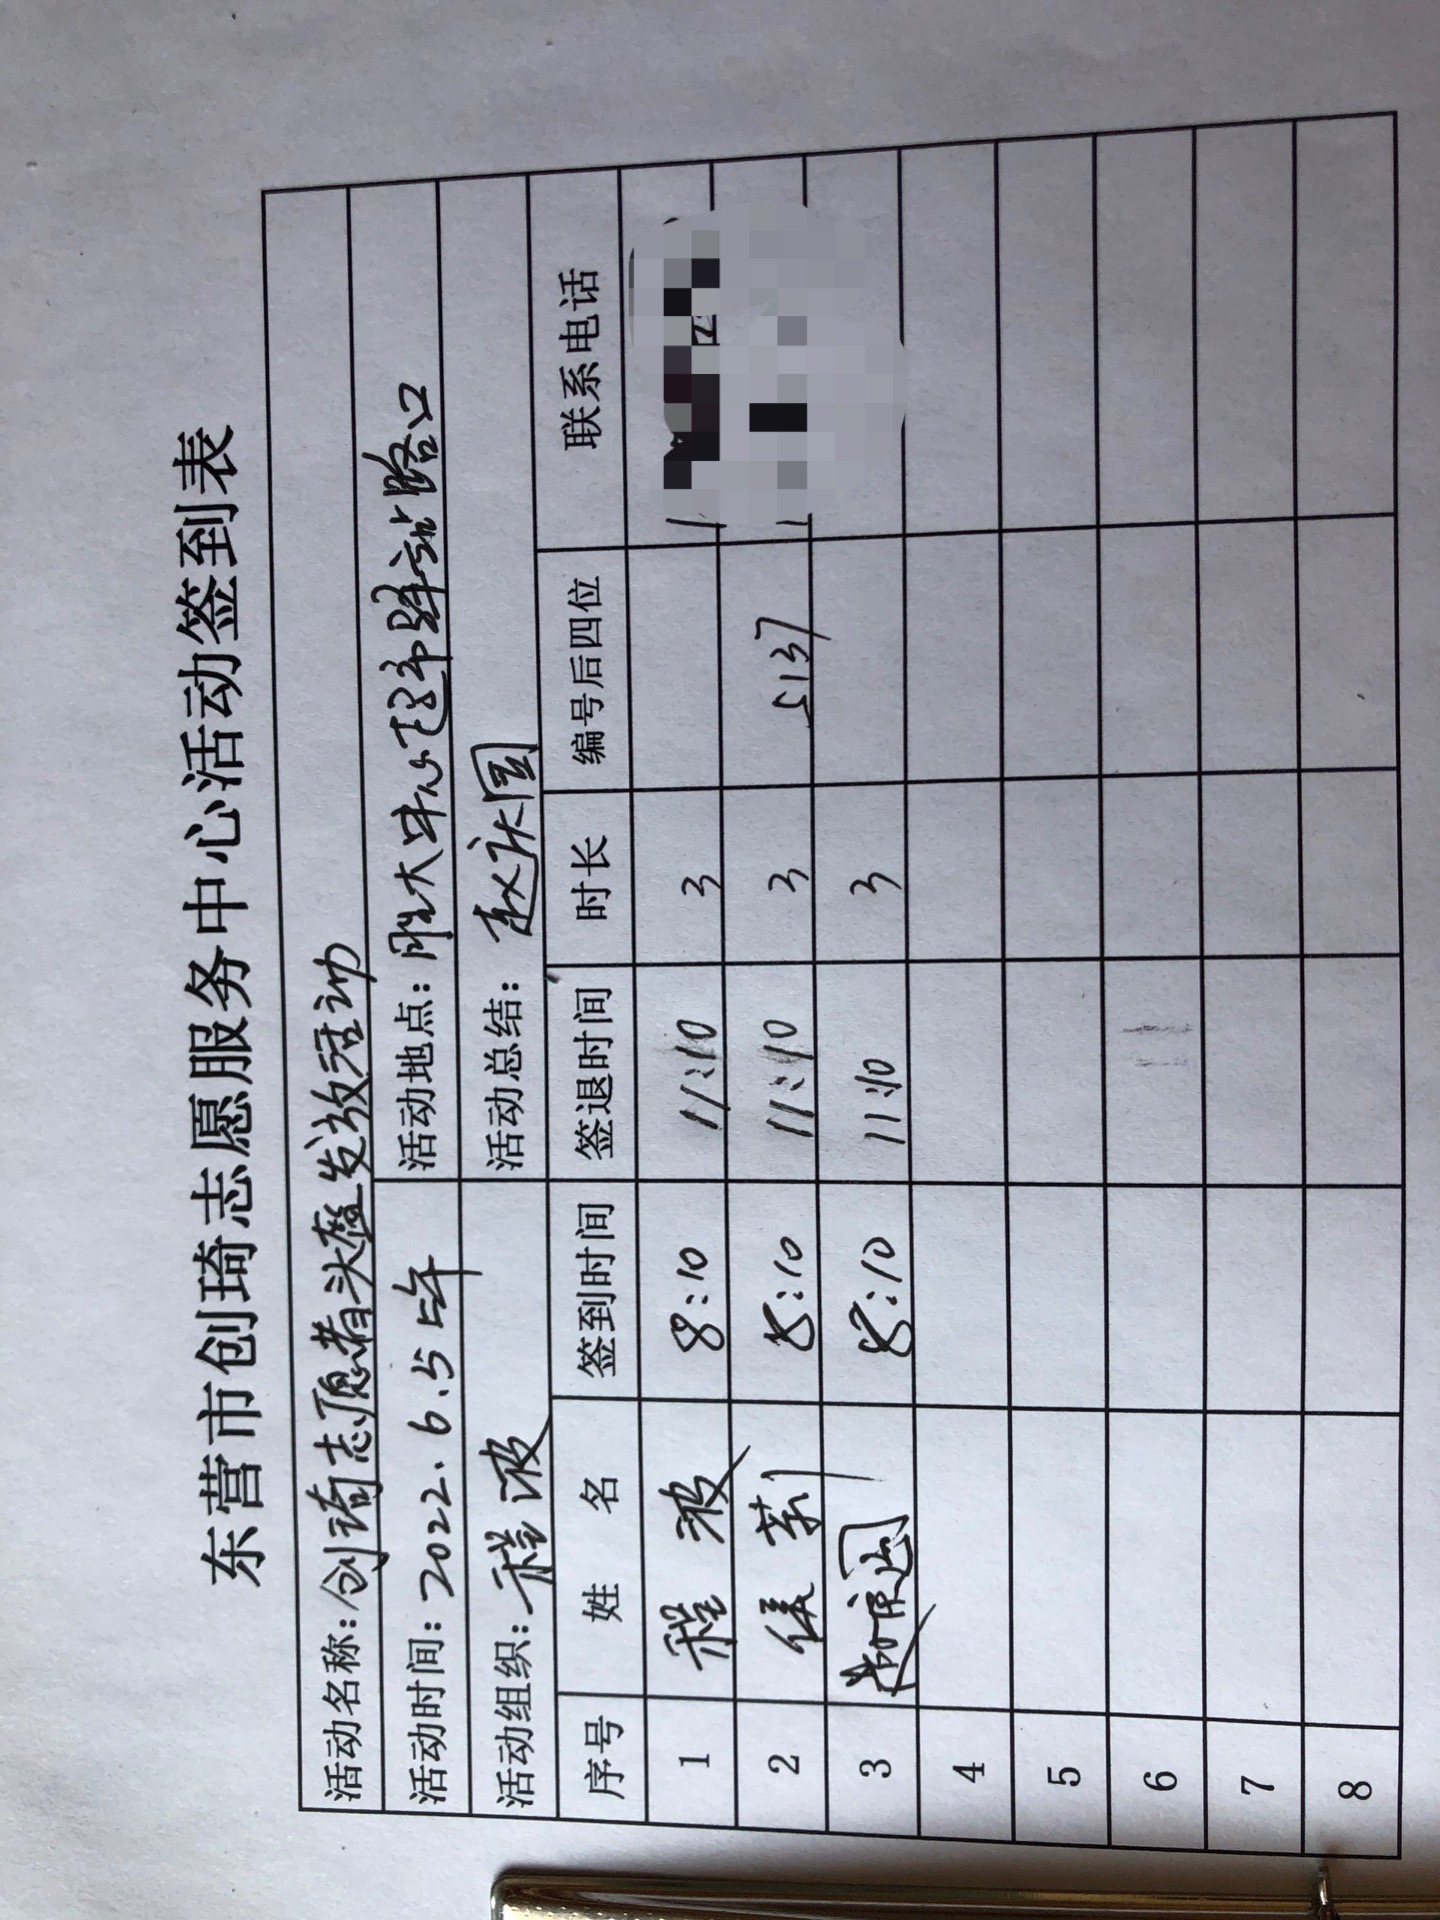 东营市创琦志愿服务中心活动签到表
活动名称：创琦志愿者头盔发放活动
活动时间：2022.6.5上午 活动地点：胜大中心超市路站路口
活动组织：程波 活动总结：赵永国
序号 姓名 签到时间 签退时间 时长 编号后四位 联系电话
1 程波 8:10 11:10 3
2 侯莉 8:10 11:10 3 5137
3 赵永国 8:10 11:10 3
4
5
6
7
8